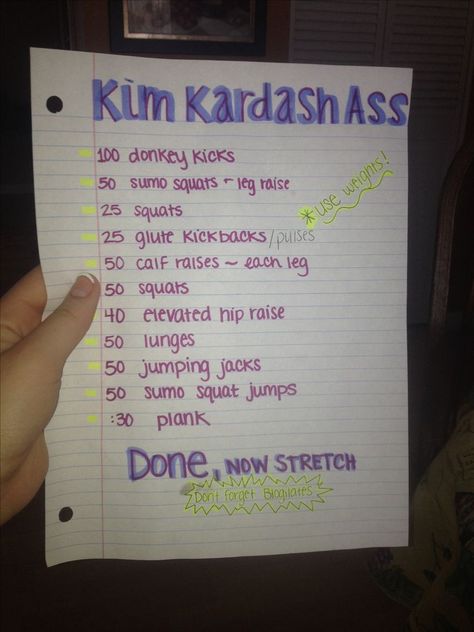 Kim KardashAss
100 donkey kicks
50 sumo squats ~ leg raise
* use weights!
25 squats
25 glute kickbacks/pulses
50 calf raises ~ each leg
50 squats
40 elevated hip raise
50 lunges
50 jumping jacks
50 sumo squat jumps
:30 plank
Done, NOW STRETCH
Dont forget Blogilates